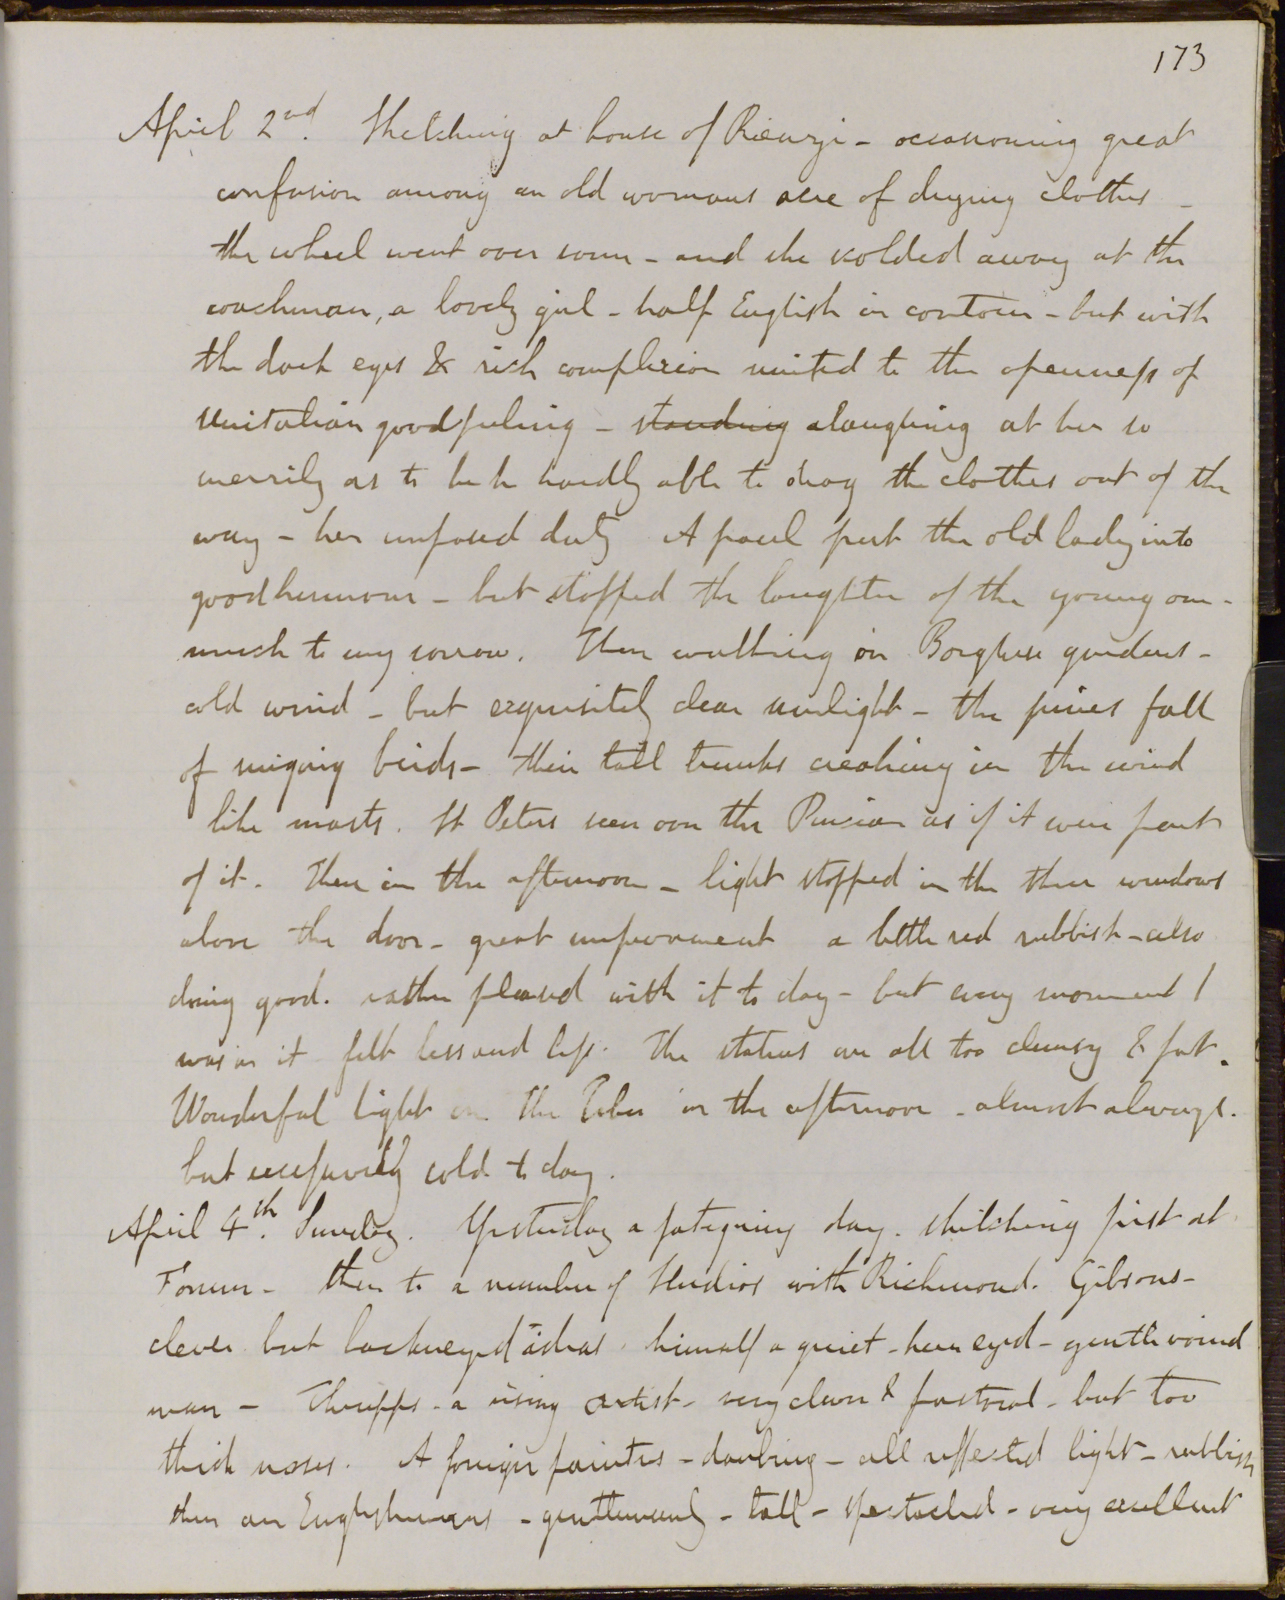 173
April 2nd. Sketching at house of Rienzi - occasioning great
confusion among an old womans acre of drying clothes -
the wheel went over some - and she scolded away at the
coachman, a lovely girl - half English in contour - but with
the dark eyes & rich complexion united to the openness of
unitalian good feeling - standing alaughing at her so
merrily as to be hardly able to drag the clothes out of the
way - her imposed duty A paul put the old lady into
good humour - but stopped the laughter of the young one -
much to my sorrow. Then walking in Borghese gardens -
cold wind - but exquisitely clear sunlight - the pines full
of singing birds - their tall trunks creaking in the wind
like masts. St Peters seen over the Pincian as if it were part
of it. Then in the afternoon - light stopped in the three windows
above the door - great improvement a little red rubbish - also
doing good. rather pleased with it to day - but every moment I
was in it felt less and less. The statues are all too clumsy & fat.
Wonderful light on the Tiber in the afternoon - almost always.
but excessively cold to day.
April 4th. Sunday. Yesterday a fatiguing day. sketching first at
Forum - then to a number of Studios with Richmond. Gibsons -
clever but hackneyed ideas. himself a quiet - keen eyed - gentle voiced
man - Thrupps - a rising artist - very clever & pastoral - but too
thick noses. A foreign painters - daubing - all reflected light - rubbish
then an Englishmans - gentlemanly - tall - spectacled - very excellent